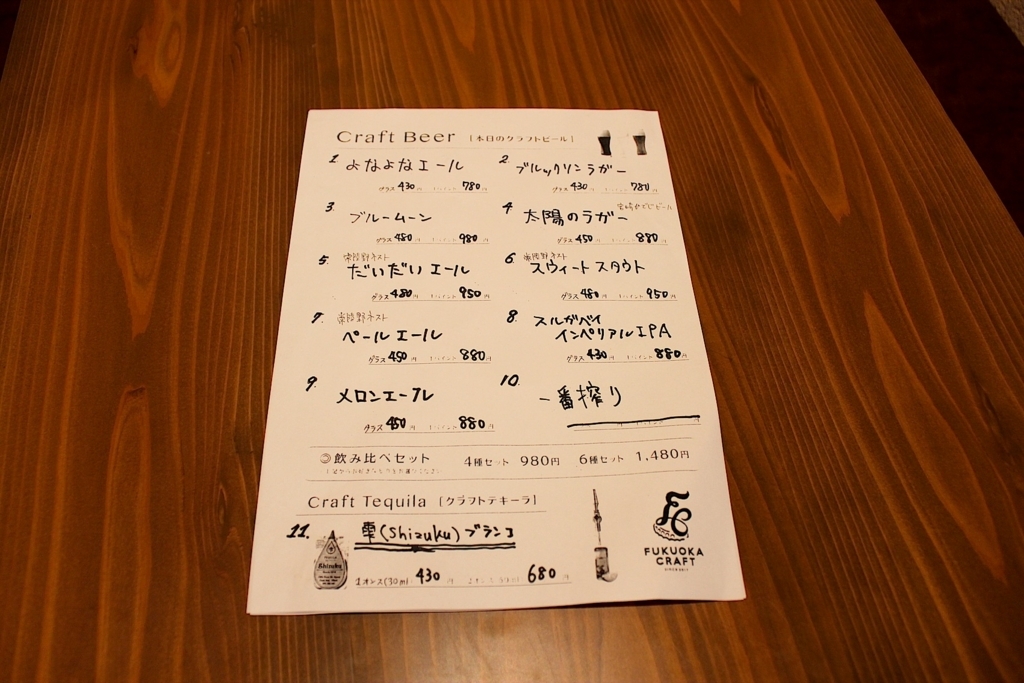 Craft Beer [本日のクラフトビール]
1. よなよなエール
グラス 430円 1パイント 780円
2. ブルックリンラガー
グラス 430円 1パイント 780円
3. ブルームーン
グラス 480円 1パイント 980円
4. 宮崎ひでじビール
太陽のラガー
グラス 450円 1パイント 880円
5. 常陸野ネスト
だいだいエール
グラス 480円 1パイント 950円
6. 常陸野ネスト
スウィートスタウト
グラス 480円 1パイント 950円
7. 常陸野ネスト
ペールエール
グラス 450円 1パイント 880円
8. スルガベイ
インペリアルIPA
グラス 430円 1パイント 880円
9. メロンエール
グラス 450円 1パイント 880円
10. 一番搾り
飲み比べセット 4種セット 980円 6種セット 1,480円
Craft Tequila [クラフトテキーラ]
11. 雫(Shizuku)ブランコ
Shizuku
1オンス(30ml) 430円 680円
FC
FUKUOKA
CRAFT